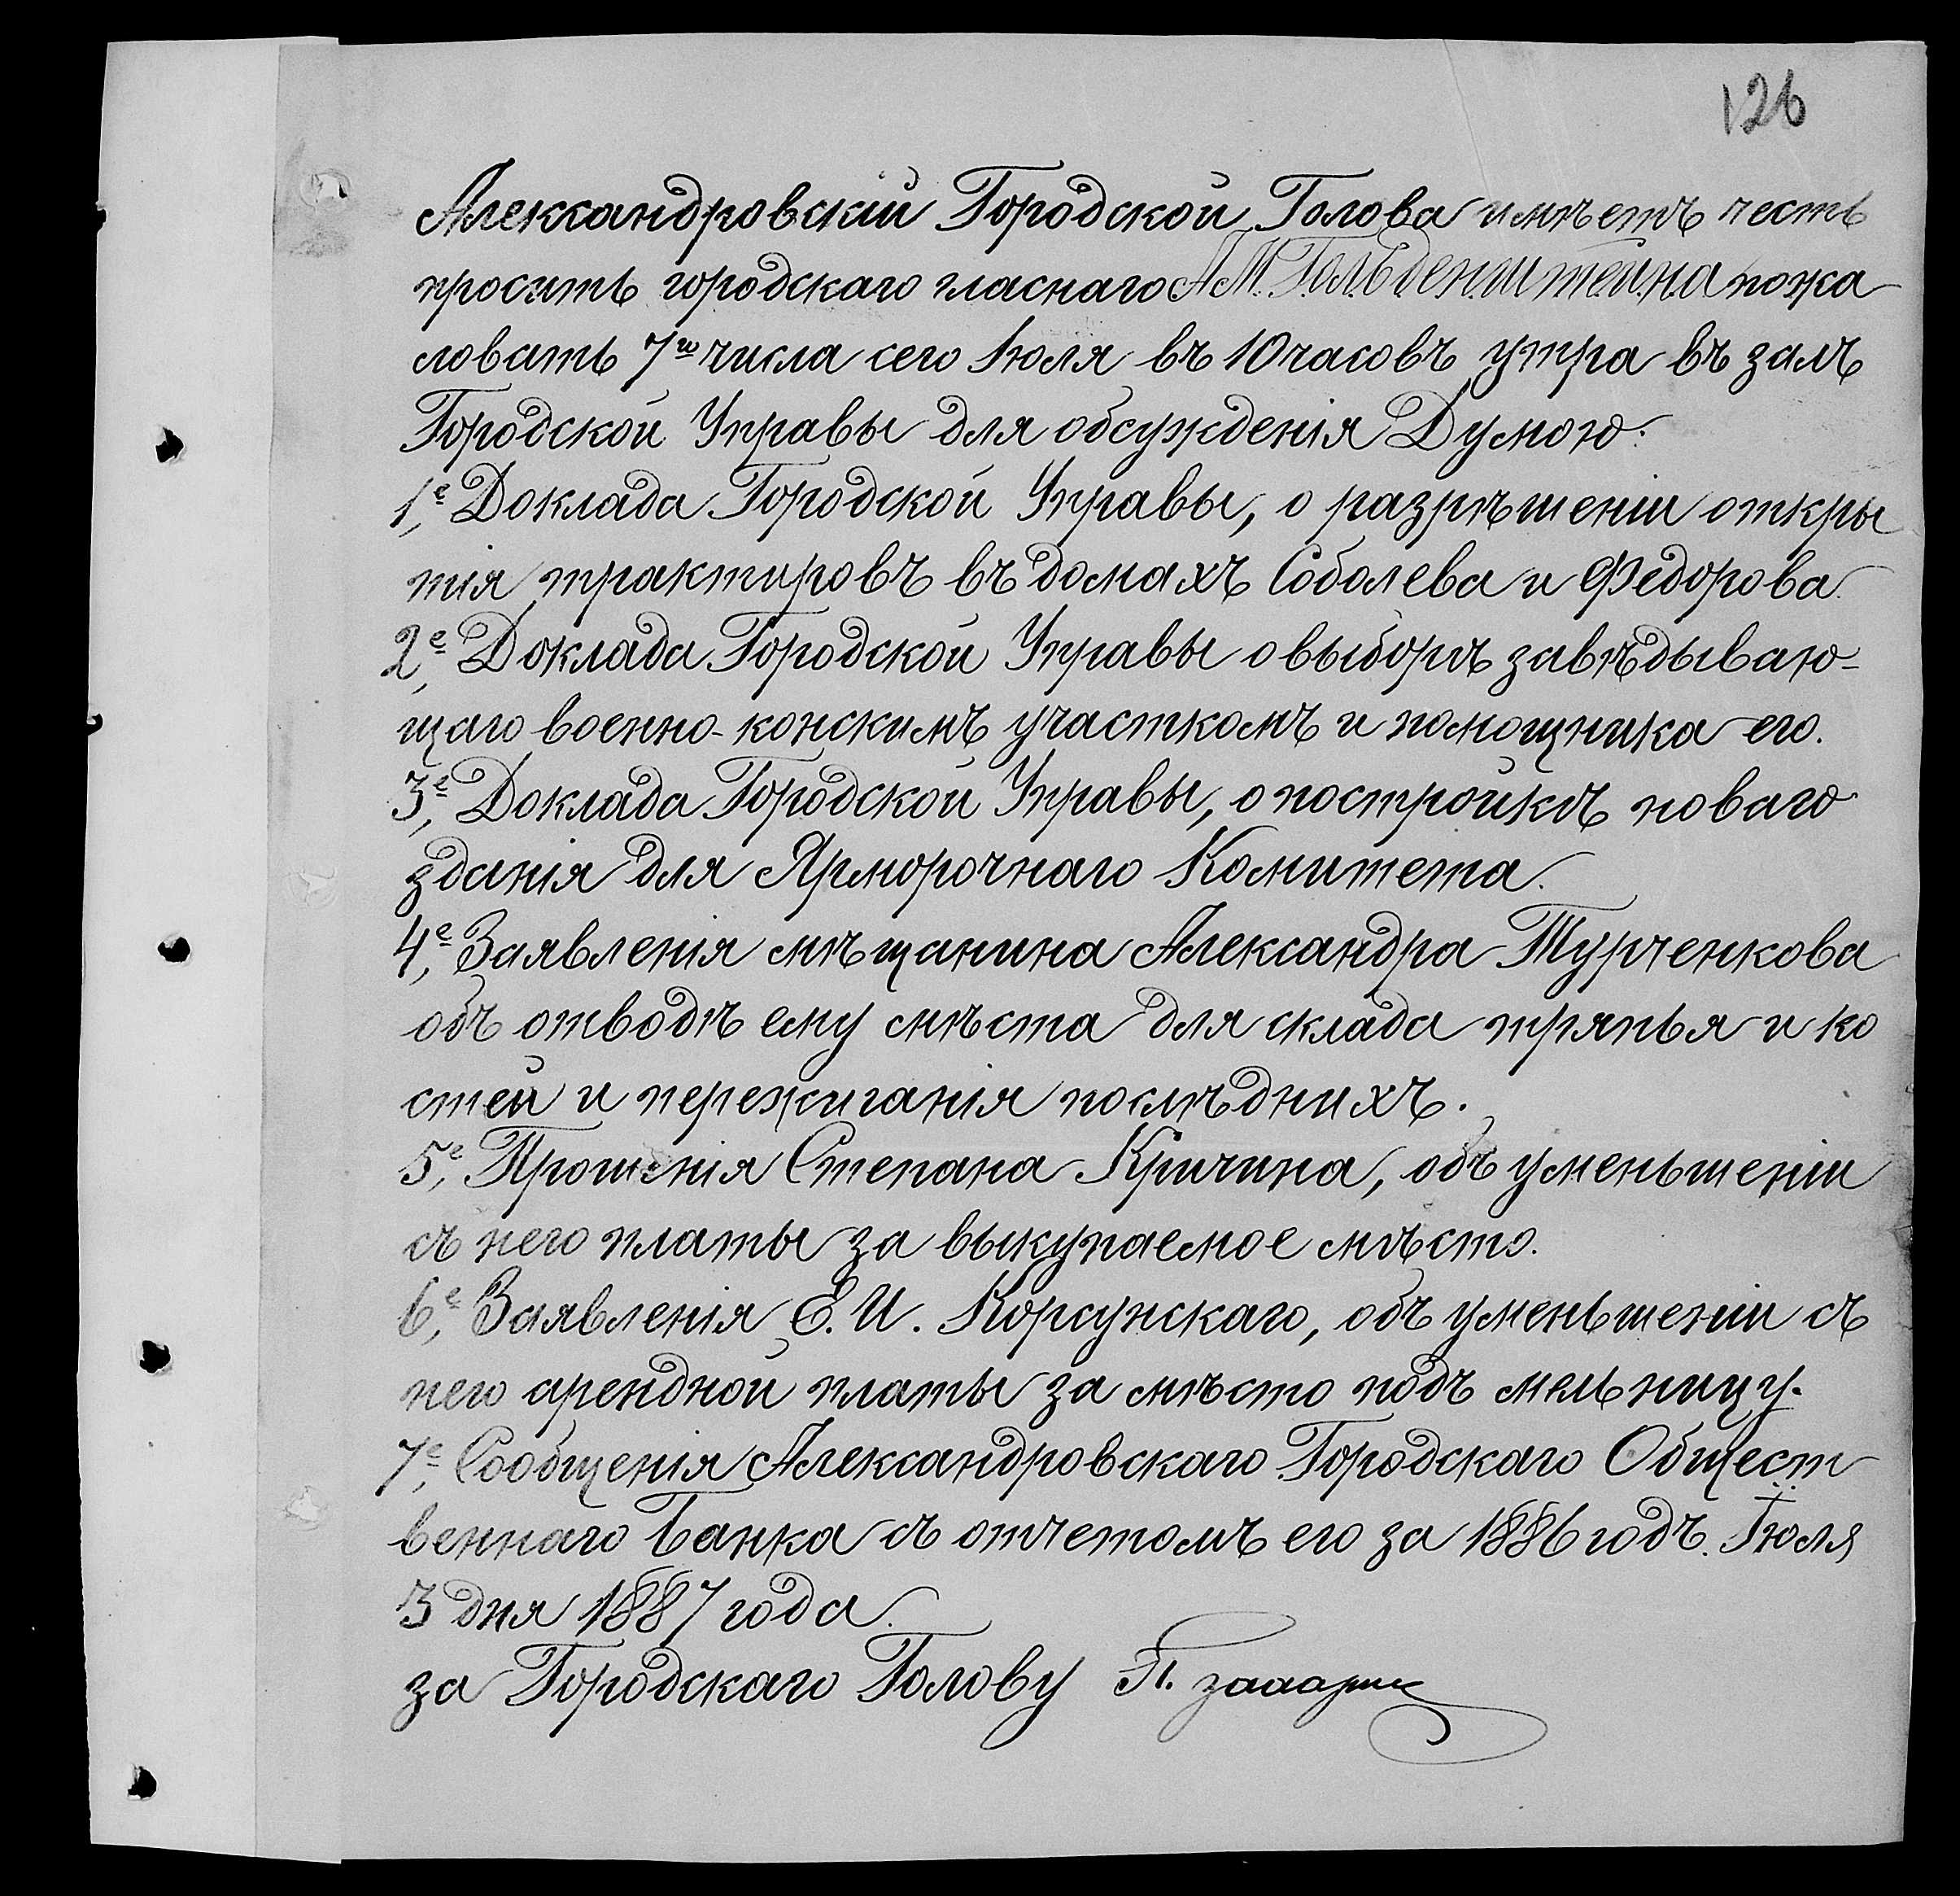 126
Александровскій Городской Голова имѣетъ честь
просить городскаго гласнаго А.М. Гольденштейна пожа
ловать 7го числа сего Іюля въ 10 часовъ утра въ залъ
Городской Управы для обсужденія Думою:
1е, Доклада Городской Управы, о разрѣшеніи откры
тія трактировъ въ домахъ Соболева и Федорова.
2е, Доклада Городской Управы о выборѣ завѣдываю-
щаго военно-конскимъ участкомъ и помощника его.
3е, Доклада Городской Управы, о постройкѣ новаго
зданія для Ярморочнаго Комитета.
4е, Заявленія мѣщанина Александра Турченкова
объ отводѣ ему мѣста для склада тряпья и ко
стей и пережиганія послѣднихъ.
5е, Прошенія Степана Кричина, объ уменьшеніи
съ него платы за выкупаемое мѣсто.
6е, Заявленія Е. И. Корсунскаго, объ уменьшеніи съ
него арендной платы за мѣсто подъ мельницу.
7е, Сообщенія Александровскаго Городскаго Общест
веннаго Банка съ отчетомъ его за 1886 годъ. Іюля
3 дня 1887 года.
за Городскаго Голову П.